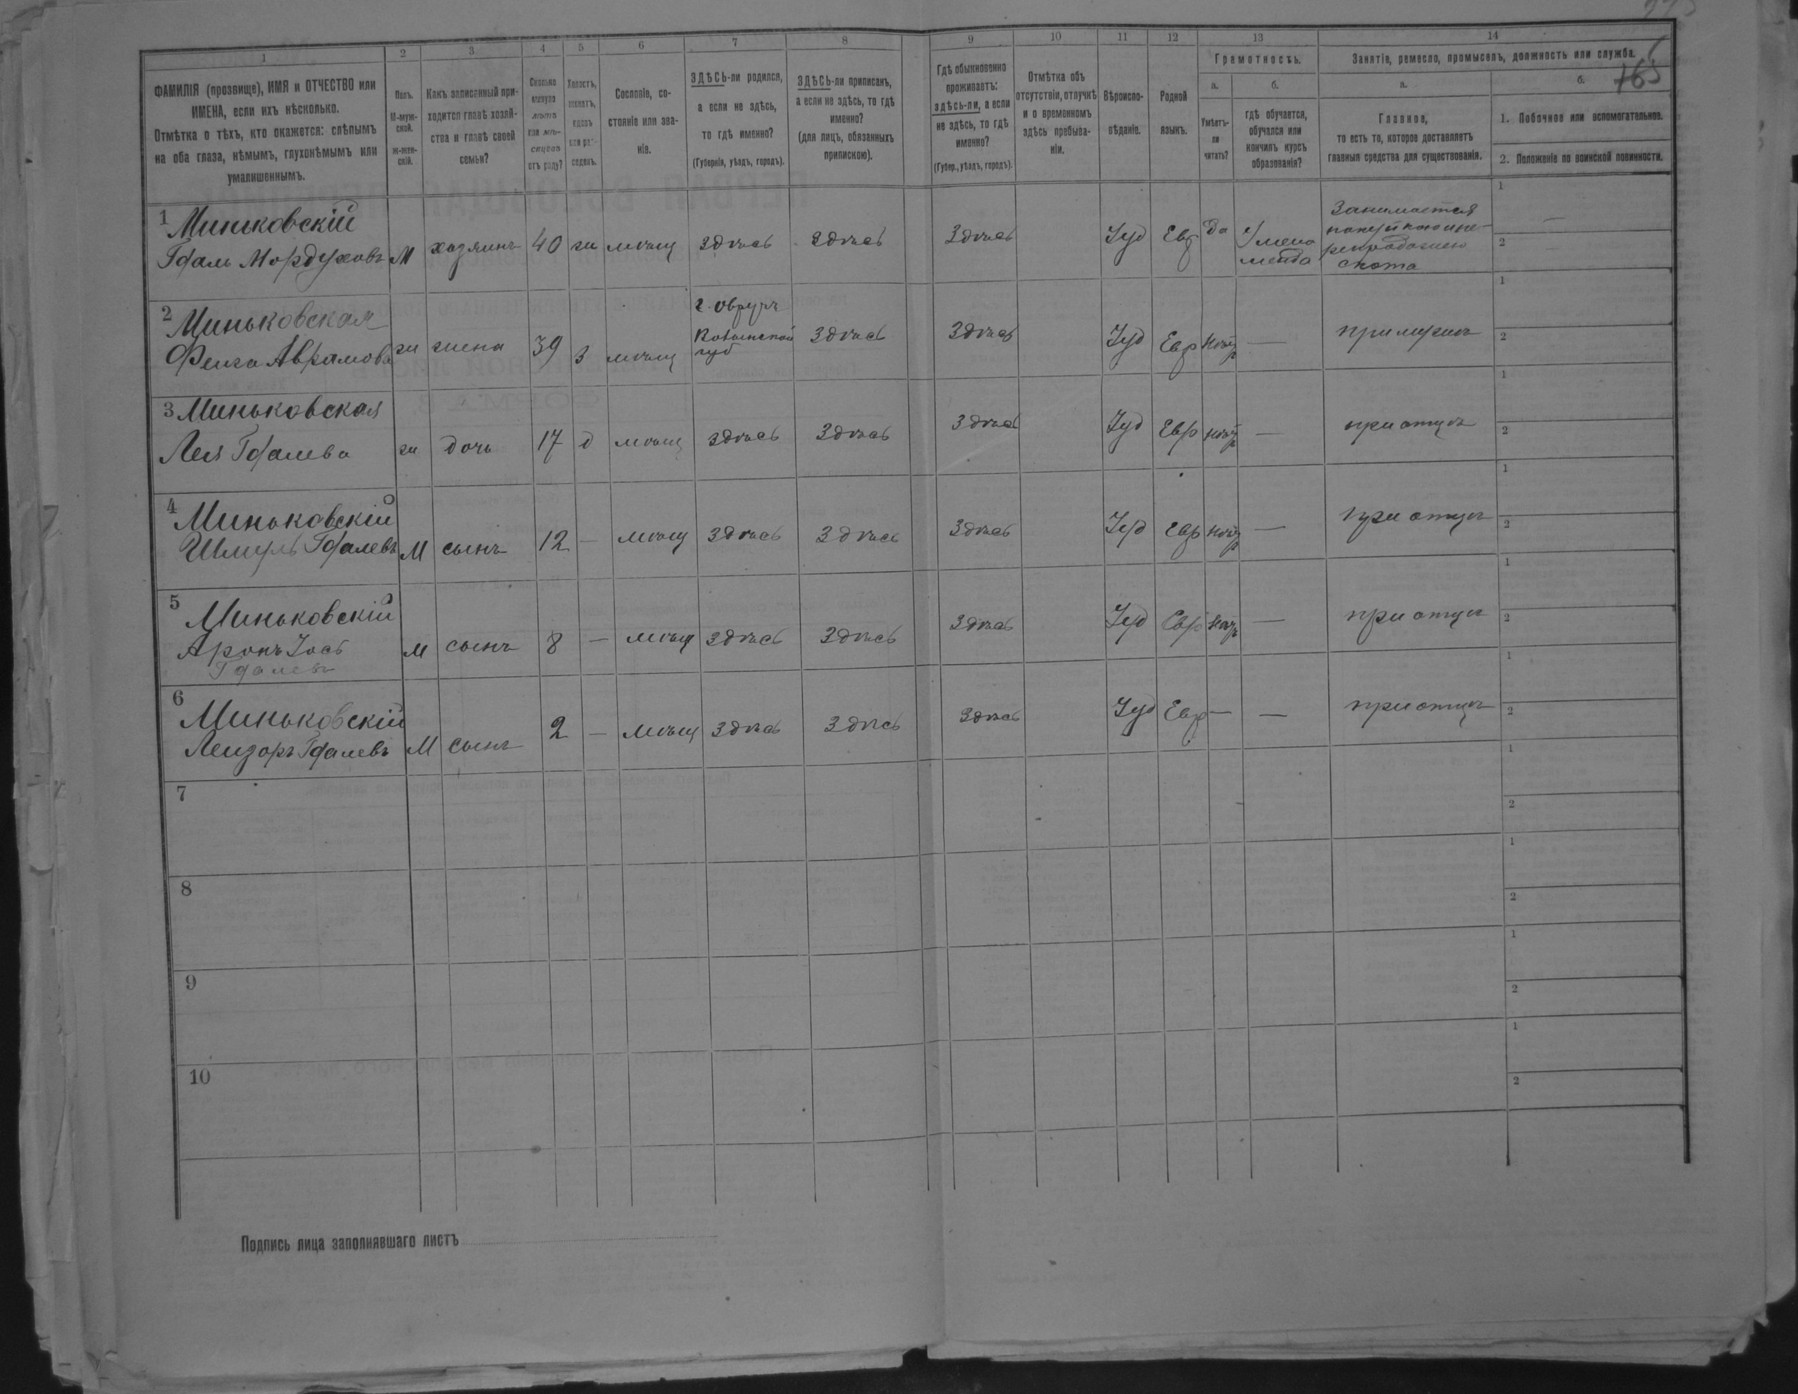 165
1 2 3 4 5 6 7 8 9 10 11 12 13 14
ФАМИЛІЯ (прозвище), ИМЯ и ОТЧЕСТВО или
ИМЕНА, если ихъ нѣсколько.
Отмѣтка о тѣхъ, кто окажется: слѣпымъ
на оба глаза, нѣмымъ, глухонѣмымъ или
умалишеннымъ.
Полъ.
М-муж-
ской.
Ж-жен-
скій.
Какъ записанный при-
ходится главѣ хозяй-
ства и главѣ своей
семьи?
Сколько
минуло
лѣтъ
или мѣ-
сяцевъ
отъ роду?
Холостъ,
женатъ,
вдовъ
или раз-
веденъ.
Сословіе, со-
стояніе или зва-
ніе.
ЗДѢСЬ-ли родился,
а если не здѣсь,
то гдѣ именно?
(Губернія, уѣздъ, городъ).
ЗДѢСЬ-ли приписанъ,
а если не здѣсь, то гдѣ
именно?
(для лицъ, обязанныхъ
припискою).
Гдѣ обыкновенно
проживаетъ:
здѣсь-ли, а если
не здѣсь, то гдѣ
именно?
(Губер., уѣздъ, городъ).
Отмѣтка объ
отсутствіи, отлучкѣ
и о временномъ
здѣсь пребыва-
ніи.
Вѣроиспо-
вѣданіе.
Родной
языкъ.
Грамотность.
а.
Умѣетъ-
ли
читать?
б.
гдѣ обучается,
обучался или
кончилъ курсъ
образованія?
Занятіе, ремесло, промыселъ, должность или служба.
а.
Главное,
то есть то, которое доставляетъ
главныя средства для существованія.
б.
1. Побочное или вспомогательное.
2. Положеніе по воинской повинности.
1 Миньковскій
Гдаль Мордуховъ М хозяинъ 40 ж мѣщ здѣсь здѣсь здѣсь Іуд Евр да У мела
меда Занимается
скота 1 — 2
2 Миньковская
Фейга Аврамова ж жена 39 з мѣщ г. Овручъ
Волынской
губ здѣсь здѣсь Іуд Евр нѣтъ — при мужѣ 1 2
3 Миньковская
Лея Гдалева ж дочь 17 д мѣщ здѣсь здѣсь здѣсь Іуд Евр нѣтъ — при отцѣ 1 2
4 Миньковскій
Шмуль Гдалевъ М сынъ 12 — мѣщ здѣсь здѣсь здѣсь Іуд Евр нѣтъ — при отцѣ 1 2
5 Миньковскій
Аронъ Іось
Гдалевъ М сынъ 8 — мѣщ здѣсь здѣсь здѣсь Іуд Евр нѣтъ — при отцѣ 1 2
6 Миньковскій
Лейзоръ Гдалевъ М сынъ 2 — мѣщ здѣсь здѣсь здѣсь Іуд Евр — — при отцѣ 1 2
7 1 2
8 1 2
9 1 2
10 1 2
Подпись лица заполнявшаго листъ